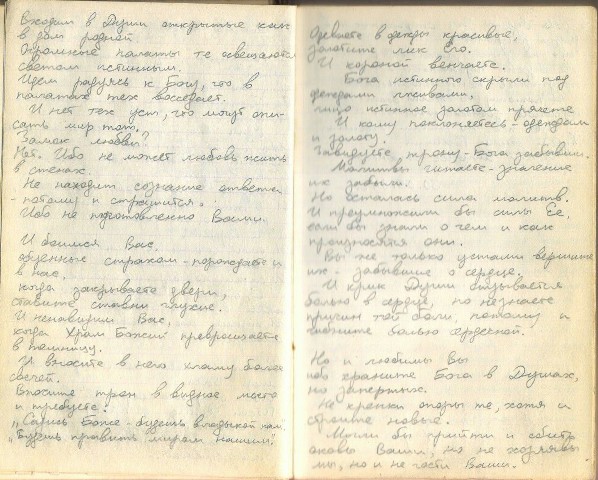 Входим в Души открытые как
в дом родной.
Огромные палаты те освещаются
светом истинным.
Идем радуясь к Богу, что в
палатах тех восседает.
И нет тех уст, что могут опи-
сать мир тот.
Замок любви?
Нет. Ибо не может любовь жить
в стенах.
Не находит сознание ответа
- потому и
Ибо не подготовленно Вами.
И боимся Вас,
страхом - порождаете и
в нас,
когда закрываете двери,
ставите ставни глухие.
И ненавидим Вас,
когда Храм Божий превращаете
в темницу.
И вносите в него хламу более
свечей.
Вносите трон в видное место
и требуете:
"Садись Боже - будешь владыкой нам"
"Будешь править миром нашим".
Одеваете в одежды красивые,
золотите лик Его.
И короной венчаете.
Бога истинного скрыли под
одеждами лживыми.
лицо истинное золотом прячете
И кому поклоняетесь - одеждам
и золоту.
Завидуете трону - Бога забывши.
Молитвы читаете - значение
их забыли.
Но осталась сила молитв.
И преумножили бы силы Ее,
если бы знали о чем и как
произносятся они.
Вы же только устами вершите
их - забывшие о сердце.
И крик Души отзывается
болью в сердце, но не знаете
причин той боли, потому и
болью сердечной.
Но и любимы Вы
ибо храните Бога в Душах,
но запертых.
Не крепки опоры те, хотя и
строите новые.
Могли бы прийти и сбить
оковы Ваши, но не хозяевы
мы, но и не гости Ваши.